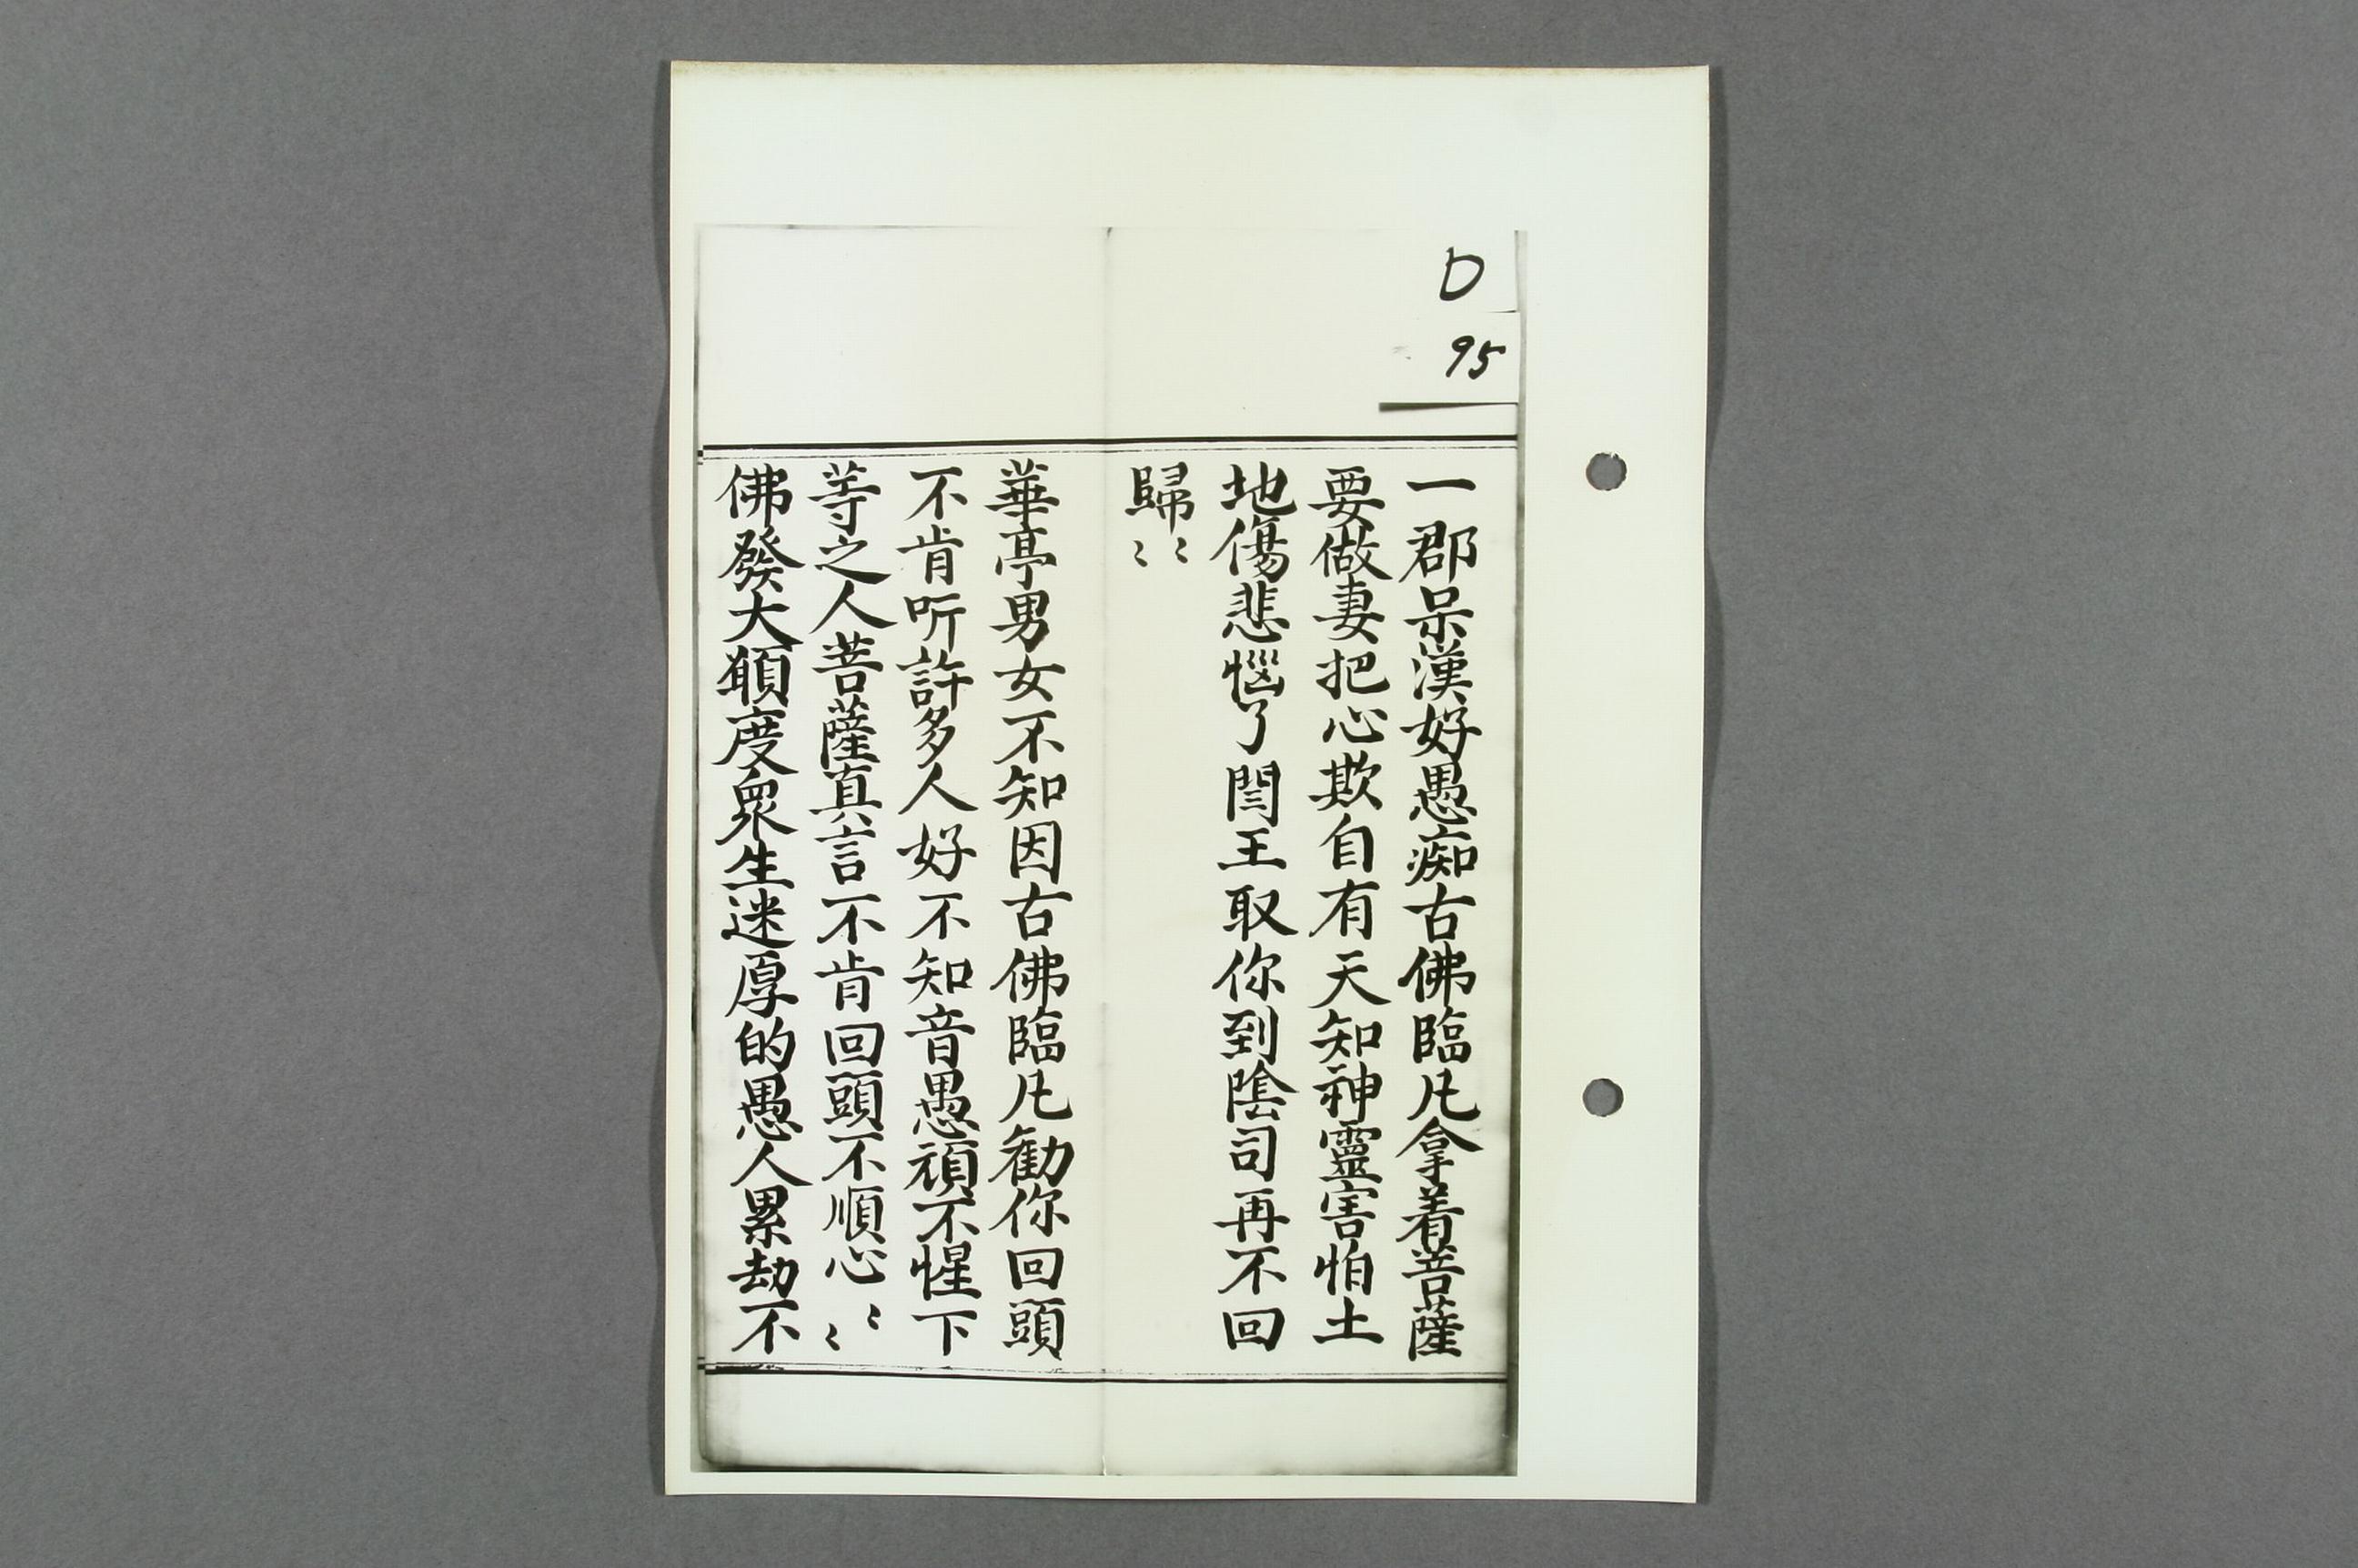 D
95
一郡呆漢好愚痴古佛臨凡拿着菩薩
要做妻把心欺自有天知神靈害怕土
地傷悲惱了閆王取你到陰司再不回
歸〻〻
華亭男女不知因古佛臨凡勸你回頭
不肯听許多人好不知音愚頑不惺下
等之人菩薩真言不肯回頭不順心〻〻
佛發大願度衆生迷厚的愚人累劫不